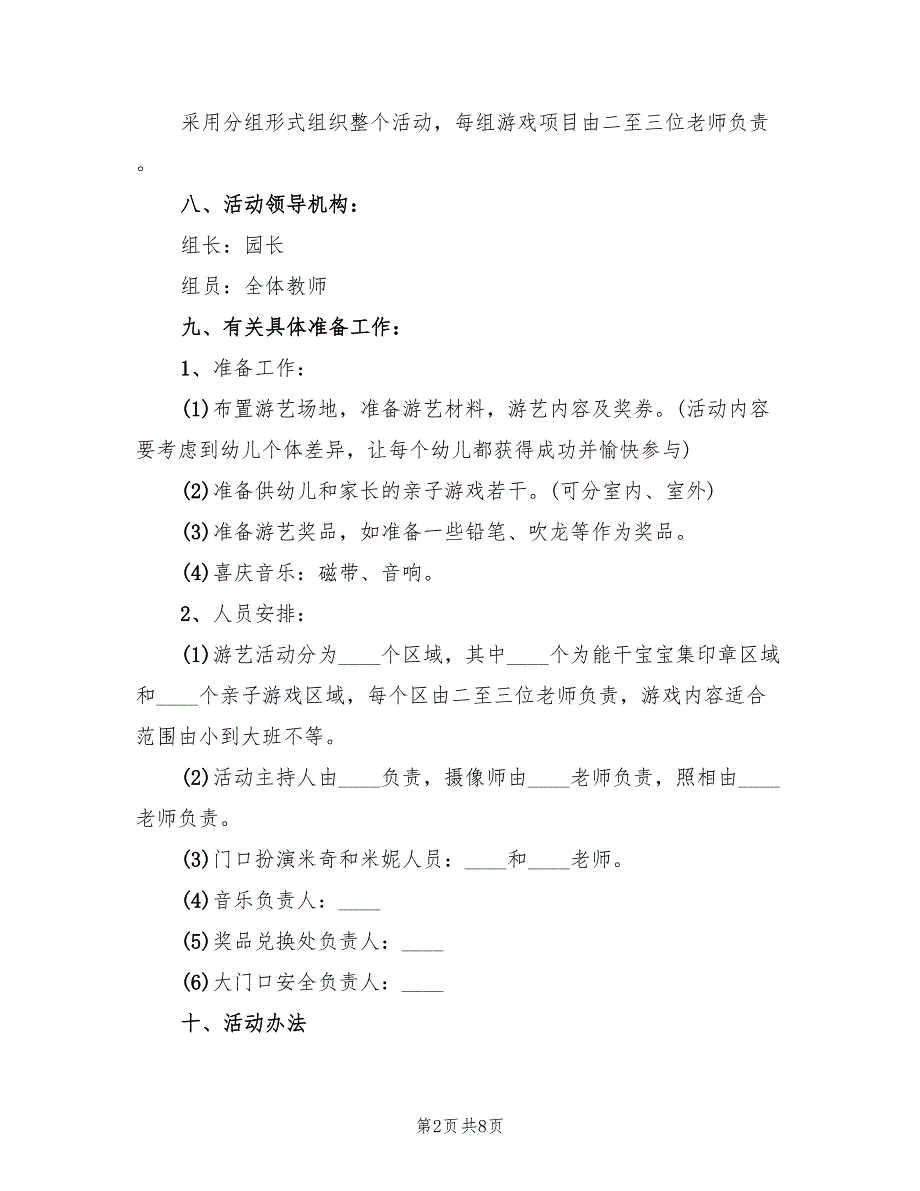 采用分组形式组织整个活动，每组游戏项目由二至三位老师负责
。
八、活动领导机构：
组长：园长
组员：全体教师
九、有关具体准备工作：
1、准备工作：
(1)布置游艺场地，准备游艺材料，游艺内容及奖券。(活动内容
要考虑到幼儿个体差异，让每个幼儿都获得成功并愉快参与)
(2)准备供幼儿和家长的亲子游戏若干。(可分室内、室外)
(3)准备游艺奖品，如准备一些铅笔、吹龙等作为奖品。
(4)喜庆音乐：磁带、音响。
2、人员安排：
(1)游艺活动分为____个区域，其中____个为能干宝宝集印章区域
和____个亲子游戏区域，每个区由二至三位老师负责，游戏内容适合
范围由小到大班不等。
(2)活动主持人由____负责，摄像师由____老师负责，照相由____
老师负责。
(3)门口扮演米奇和米妮人员：____和____老师。
(4)音乐负责人：____
(5)奖品兑换处负责人：____
(6)大门口安全负责人：____
十、活动办法
第2页 共8页